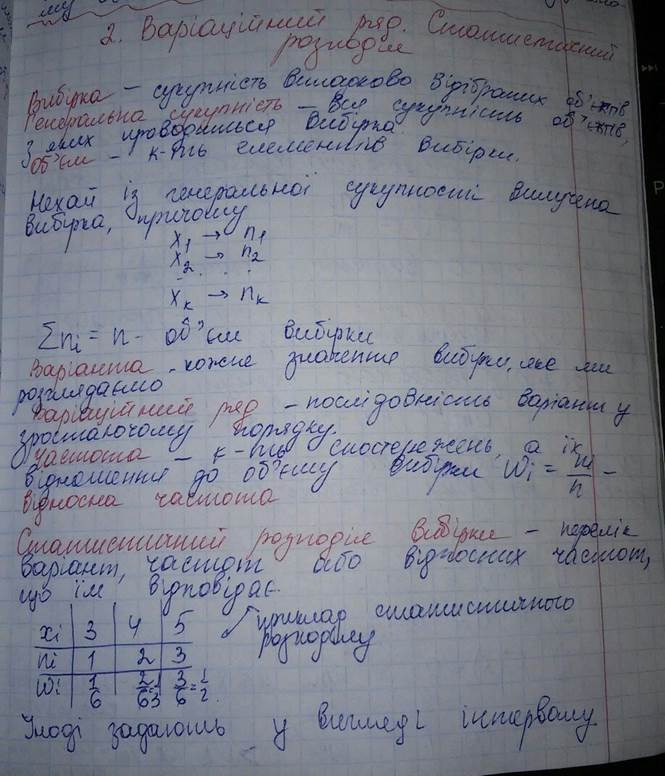 му
2. Варіаційний ряд. Статистичний
розподіл
Вибірка – сукупність випадково відібраних об'єктів
Генеральна сукупність – вся сукупність об'єктів,
з яких проводиться вибірка.
Об'єм – к-ть елементів вибірки.
Нехай із генеральної сукупності вилучена
вибірка, причому
x₁ → n₁
x₂ → n₂
. . .
xₖ → nₖ
Σnᵢ = n - об'єм вибірки
Варіанта - кожне значення вибірки, яке ми
розглядаємо
Варіаційний ряд – послідовність варіант у
зростаючому порядку.
Частота – к-ть спостережень, а їх
відношення до об'єму вибірки Wᵢ = nᵢ/n –
відносна частота
Статистичний розподіл вибірки – перелік
варіант, частот або відносних частот,
що їм відповідає.
xᵢ | 3 | 4 | 5 приклад статистичного
розподілу
nᵢ | 1 | 2 | 3
Wᵢ | 1/6 | 2/6=1/3 | 3/6=1/2
Іноді задають у вигляді інтервалу